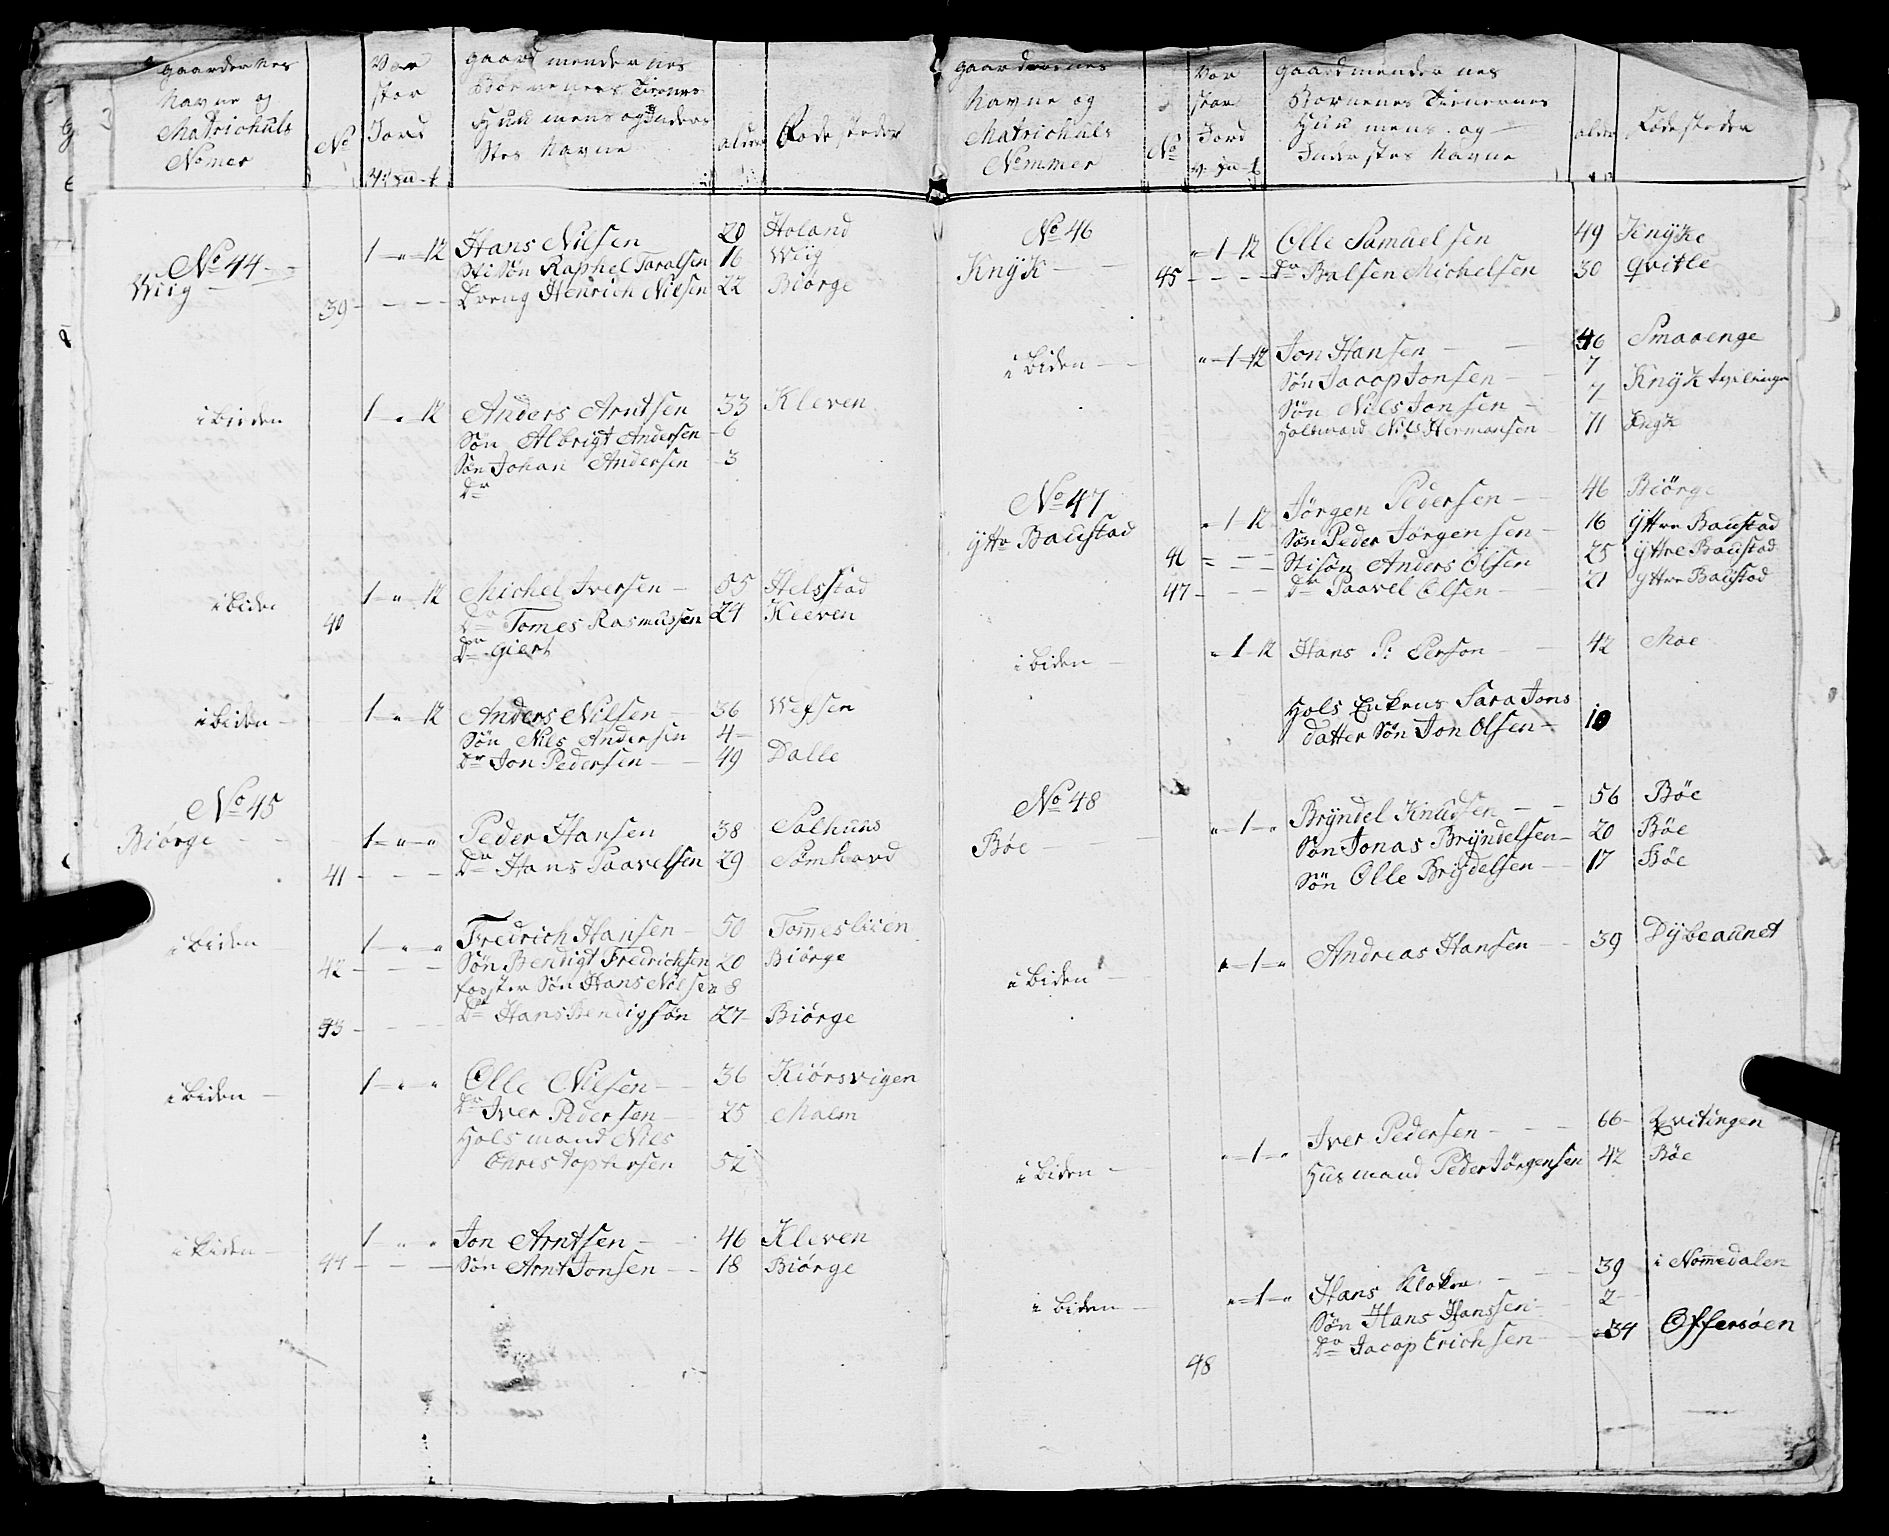 gaardernes
Navne og
Matrichuls
Nomer
No
Vor
stor
Jord
gaard mendernes
Børnenes Tienes
Huus mens og Inders
Stes Navne
alder
Fødesteder
No 44
Wiig
1 " 12 Hans Nilsen 20 Holand
Sti Søn Raphel Taralsen 16 Wiig
39 Dreng Henrich Nilsen 22 Biørge
i biden 1 " 12 Anders Arntsen 33 Kleven
Søn Albrigt Andersen 6
Søn Johan Andersen 3
Dr
i biden 1 " 12 Michel Iversen 55 Helsstad
40 Dr Tomes Rasmussen 24 Kleven
Dr Giert
i biden 1 " 12 Anders Nilsen 36 Wefsen
Søn Nils Andersen 4
Dr Jon Pedersen 49 Dalle
No 45
Biørge 1 " " Peder Hansen 38 Solhuus
41 Dr Hans Paavelsen 29 Sømhovd
i biden 1 " " Fredrich Hansen 50 Tomeslien
42 Søn Bendigt Fredrichsen 20 Biørge
foster Søn Hans Nilsen 8
43 Dr Hans Bendigsøn 27 Biørge
i biden 1 " " Olle Nilsen 36 Kiørsvigen
Dr Iver Pedersen 25 Malm
Hols mand Niels
Christophersen 52
i biden 1 " " Jon Arntsen 46 Kleven
44 Søn Arnt Jonsen 18 Biørge
gaardernes
Navne og
Matrichuls
Nommer
No
Vor
stor
Jord
gaardmendernes
Børnenes Tienernes
Huus mens og
Inderstes Navne
alder
Fødesteder
No 46
Knÿk " 1 12 Olle Samuelsen 49 Knÿke
45 Dr Balsen Michelsen 30 Qvitle
i biden " 1 12 Jon Hansen 46 Smaaenge
Søn Jacop Jonsen 7
Søn Nils Jonsen 7 Knÿk tvilinger
Holsmand Nils Hermansen 71 Knÿk
No 47
Ÿttre Baustad " 1 12 Jørgen Pedersen 46 Biørge
Søn Peder Jørgensen 16 Ÿttre Baustad
46 Stisøn Anders Olsen 25 Ÿttre Baustad
47 Dr Paavel Olsen 21 Ÿttre Baustad
i biden " 1 12 Hans P: Person 42 Moe
Hols Enkens Sara Jons
datter Søn Jon Olsen 10
No 48
Bøe " 1 " Brÿndel Knudsen 56 Bøe
Søn Jonas Brÿndelsen 20 Bøe
Søn Olle Brÿdelsen 17 Bøe
i biden " 1 " Andreas Hansen 39 Dÿbeaunet
i biden " 1 " Iver Pedersen 66 Qvitingen
Husmand Peder Jørgensen 42 Bøe
i biden " 1 " Hans Kloker 39 i Nomedalen
Søn Hans Hanssen 2
48 Dr Jacop Erichsen 34 Offersøen